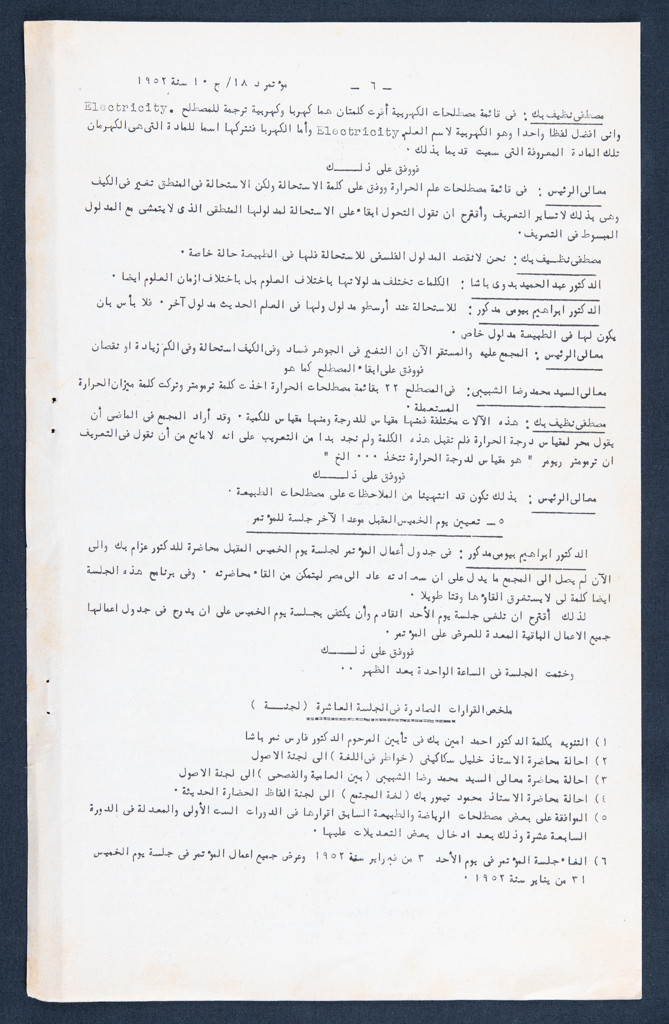 - ٦ - مؤتمر د ١٨/ ج ١٠ سنة ١٩٥٢
مصطفى نظيف بك : فى قائمة مصطلحات الكهربية أقرت كلمتان هما كهربا وكهربية ترجمة للمصطلح Electricity.
وانى افضل لفظا واحدا وهو الكهربية لاسم العلم Electricity وأما الكهربا فنتركها اسما للمادة التى هى الكهرمان
تلك المادة المعروفة التى سميت قديما بذلك .
فووفق على ذلك
معالى الرئيس : فى قائمة مصطلحات علم الحرارة ووفق على كلمة الاستحالة ولكن الاستحالة فى المنطق تغير فى الكيف
وهى بذلك لا تساير التعريف وأقترح ان نقول التحول ابقاء على الاستحالة لمدلولها المنطقى الذى لا يتمشى مع المدلول
المبسوط فى التعريف.
مصطفى نظيف بك : نحن لا نقصد المدلول الفلسفى للاستحالة فلها فى الطبيعة حالة خاصة .
الدكتور عبد الحميد بدوى باشا : الكلمات تختلف مدلولاتها باختلاف العلوم بل باختلاف ازمان العلوم ايضا .
الدكتور ابراهيم بيومى مدكور : للاستحالة عند أرسطو مدلول ولها فى العلم الحديث مدلول آخر . فلا بأس بان
يكون لها فى الطبيعة مدلول خاص .
معالى الرئيس : المجمع عليه والمستقر الآن ان التغير فى الجوهر فساد وفى الكيف استحالة وفى الكم زيادة او نقصان
فووفق على ابقاء المصطلح كما هو
معالى السيد محمد رضا الشبيبى : فى المصطلح ٢٢ بقائمة مصطلحات الحرارة اخذت كلمة ترمومتر وتركت كلمة ميزان الحرارة
المستعملة .
مصطفى نظيف بك : هذه الآلات مختلفة فمنها مقياس للدرجة ومنها مقياس للكمية . وقد أراد المجمع فى الماضى أن
يقول محر لمقياس درجة الحرارة فلم تقبل هذه الكلمة ولم نجد بدا من التعريب على انه لا مانع من أن نقول فى التعريف
ان ترمومتر ريومر " هو مقياس لدرجة الحرارة تتخذ ... الخ "
فووفق على ذلك
معالى الرئيس : بذلك نكون قد انتهينا من الملاحظات على مصطلحات الطبيعة .
٥ - تعيين يوم الخميس المقبل موعدا لآخر جلسة للمؤتمر
الدكتور ابراهيم بيومى مدكور : فى جدول أعمال المؤتمر لجلسة يوم الخميس المقبل محاضرة للدكتور عزام بك والى
الآن لم يصل الى المجمع ما يدل على ان سعادته عاد الى مصر ليتمكن من القاء محاضرته . وفى برنامج هذه الجلسة
ايضا كلمة لى لا يستغرق القاؤها وقتا طويلا .
لذلك أقترح ان تلغى جلسة يوم الأحد القادم وأن يكتفى بجلسة يوم الخميس على ان يدرج فى جدول اعمالها
جميع الاعمال الباقية المعدة للعرض على المؤتمر .
فووفق على ذلك
وختمت الجلسة فى الساعة الواحدة بعد الظهر ..
ملخص القرارات الصادرة فى الجلسة العاشرة (لجنة )
١) التنويه بكلمة الدكتور احمد امين بك فى تأبين المرحوم الدكتور فارس نمر باشا
٢) احالة محاضرة الاستاذ خليل سكاكينى (خواطر فى اللغة ) الى لجنة الاصول
٣) احالة محاضرة معالى السيد محمد رضا الشبيبى (بين العامية والفصحى ) الى لجنة الاصول
٤) احالة محاضرة الاستاذ محمود تيمور بك (لغة المجتمع ) الى لجنة الفاظ الحضارة الحديثة .
٥) الموافقة على بعض مصطلحات الرياضة والطبيعة السابق اقرارها فى الدورات الست الأولى والمعدلة فى الدورة
السابعة عشرة وذلك بعد ادخال بعض التعديلات عليها .
٦) الغاء جلسة المؤتمر فى يوم الأحد ٣ من فبراير سنة ١٩٥٢ وعرض جميع اعمال المؤتمر فى جلسة يوم الخميس
٣١ من يناير سنة ١٩٥٢ .